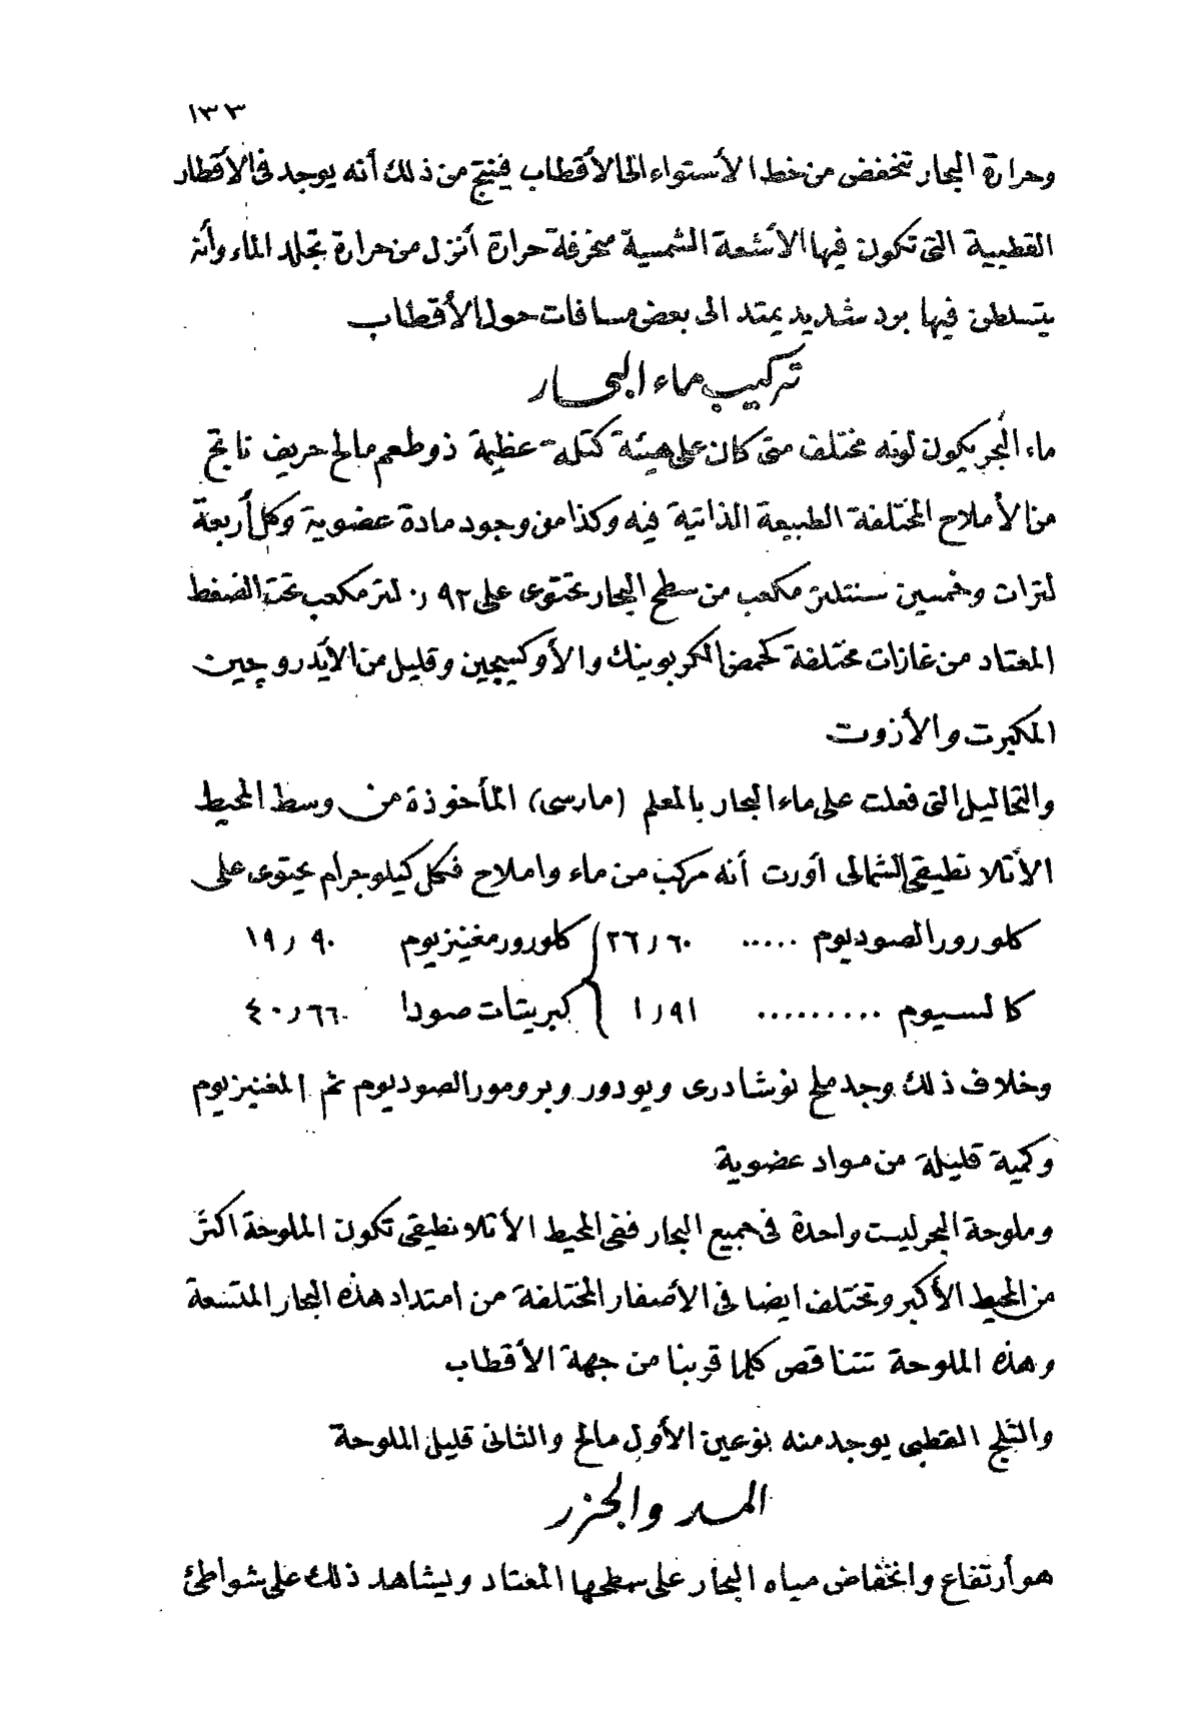 ١٣٣
وحرارة البحار تنخفض من خط الأستواء الى الأقطاب فينتج من ذلك أنه يوجد فى الأقطار
القطبية التى تكون فيها الأشعة الشمسية منحرفة حرارة أنزل من حرارة تجلد الماء وأنه
يتسلطن فيها برد شديد يمتد الى بعض مسافات حول الأقطاب
تركيب ماء البحار
ماء البحر يكون لونه مختلف متى كان على هيئة كتلة عظيمة ذو طعم مالح حريف ناتج
من الأملاح المختلفة الطبيعة الذاتية فيه وكذا من وجود مادة عضوية وكل أربعة
لترات وخمسين سنتلتر مكعب من سطح البحار تحتوى على ٩٢ر٠ لتر مكعب تحت الضغط
المعتاد من غازات مختلفة كحمض الكربونيك والأوكسيجين وقليل من الأيدروچين
المكبرت والأزوت
والتحاليل التى فعلت على ماء البحار بالمعلم (مارسى) المأخوذة من وسط المحيط
الأتلانطيقى الشمالى أورت أنه مركب من ماء واملاح فكل كيلوجرام يحتوى على
كلورور الصوديوم ..... ٢٦ر٦٠ كلورور مغنيزيوم ١٩ر٩٠
كالسيوم ......... ١ر٩١ كبريتات صودا ٤٠ر٦٦
وخلاف ذلك وجد ملح نوشادرى ويودور وبرومور الصوديوم ثم المغنيزيوم
وكمية قليلة من مواد عضوية
وملوحة البحر ليست واحدة فى جميع البحار ففى المحيط الأتلانطيقى تكون الملوحة اكثر
من المحيط الأكبر وتختلف ايضا فى الأصفار المختلفة من امتداد هذه البحار المتسعة
وهذه الملوحة تتناقص كلما قربنا من جهة الأقطاب
والثلج القطبى يوجد منه نوعين الأول مالح والثانى قليل الملوحة
المد والجزر
هو أرتفاع وانخفاض مياه البحار على سطحها المعتاد ويشاهد ذلك على شواطئ